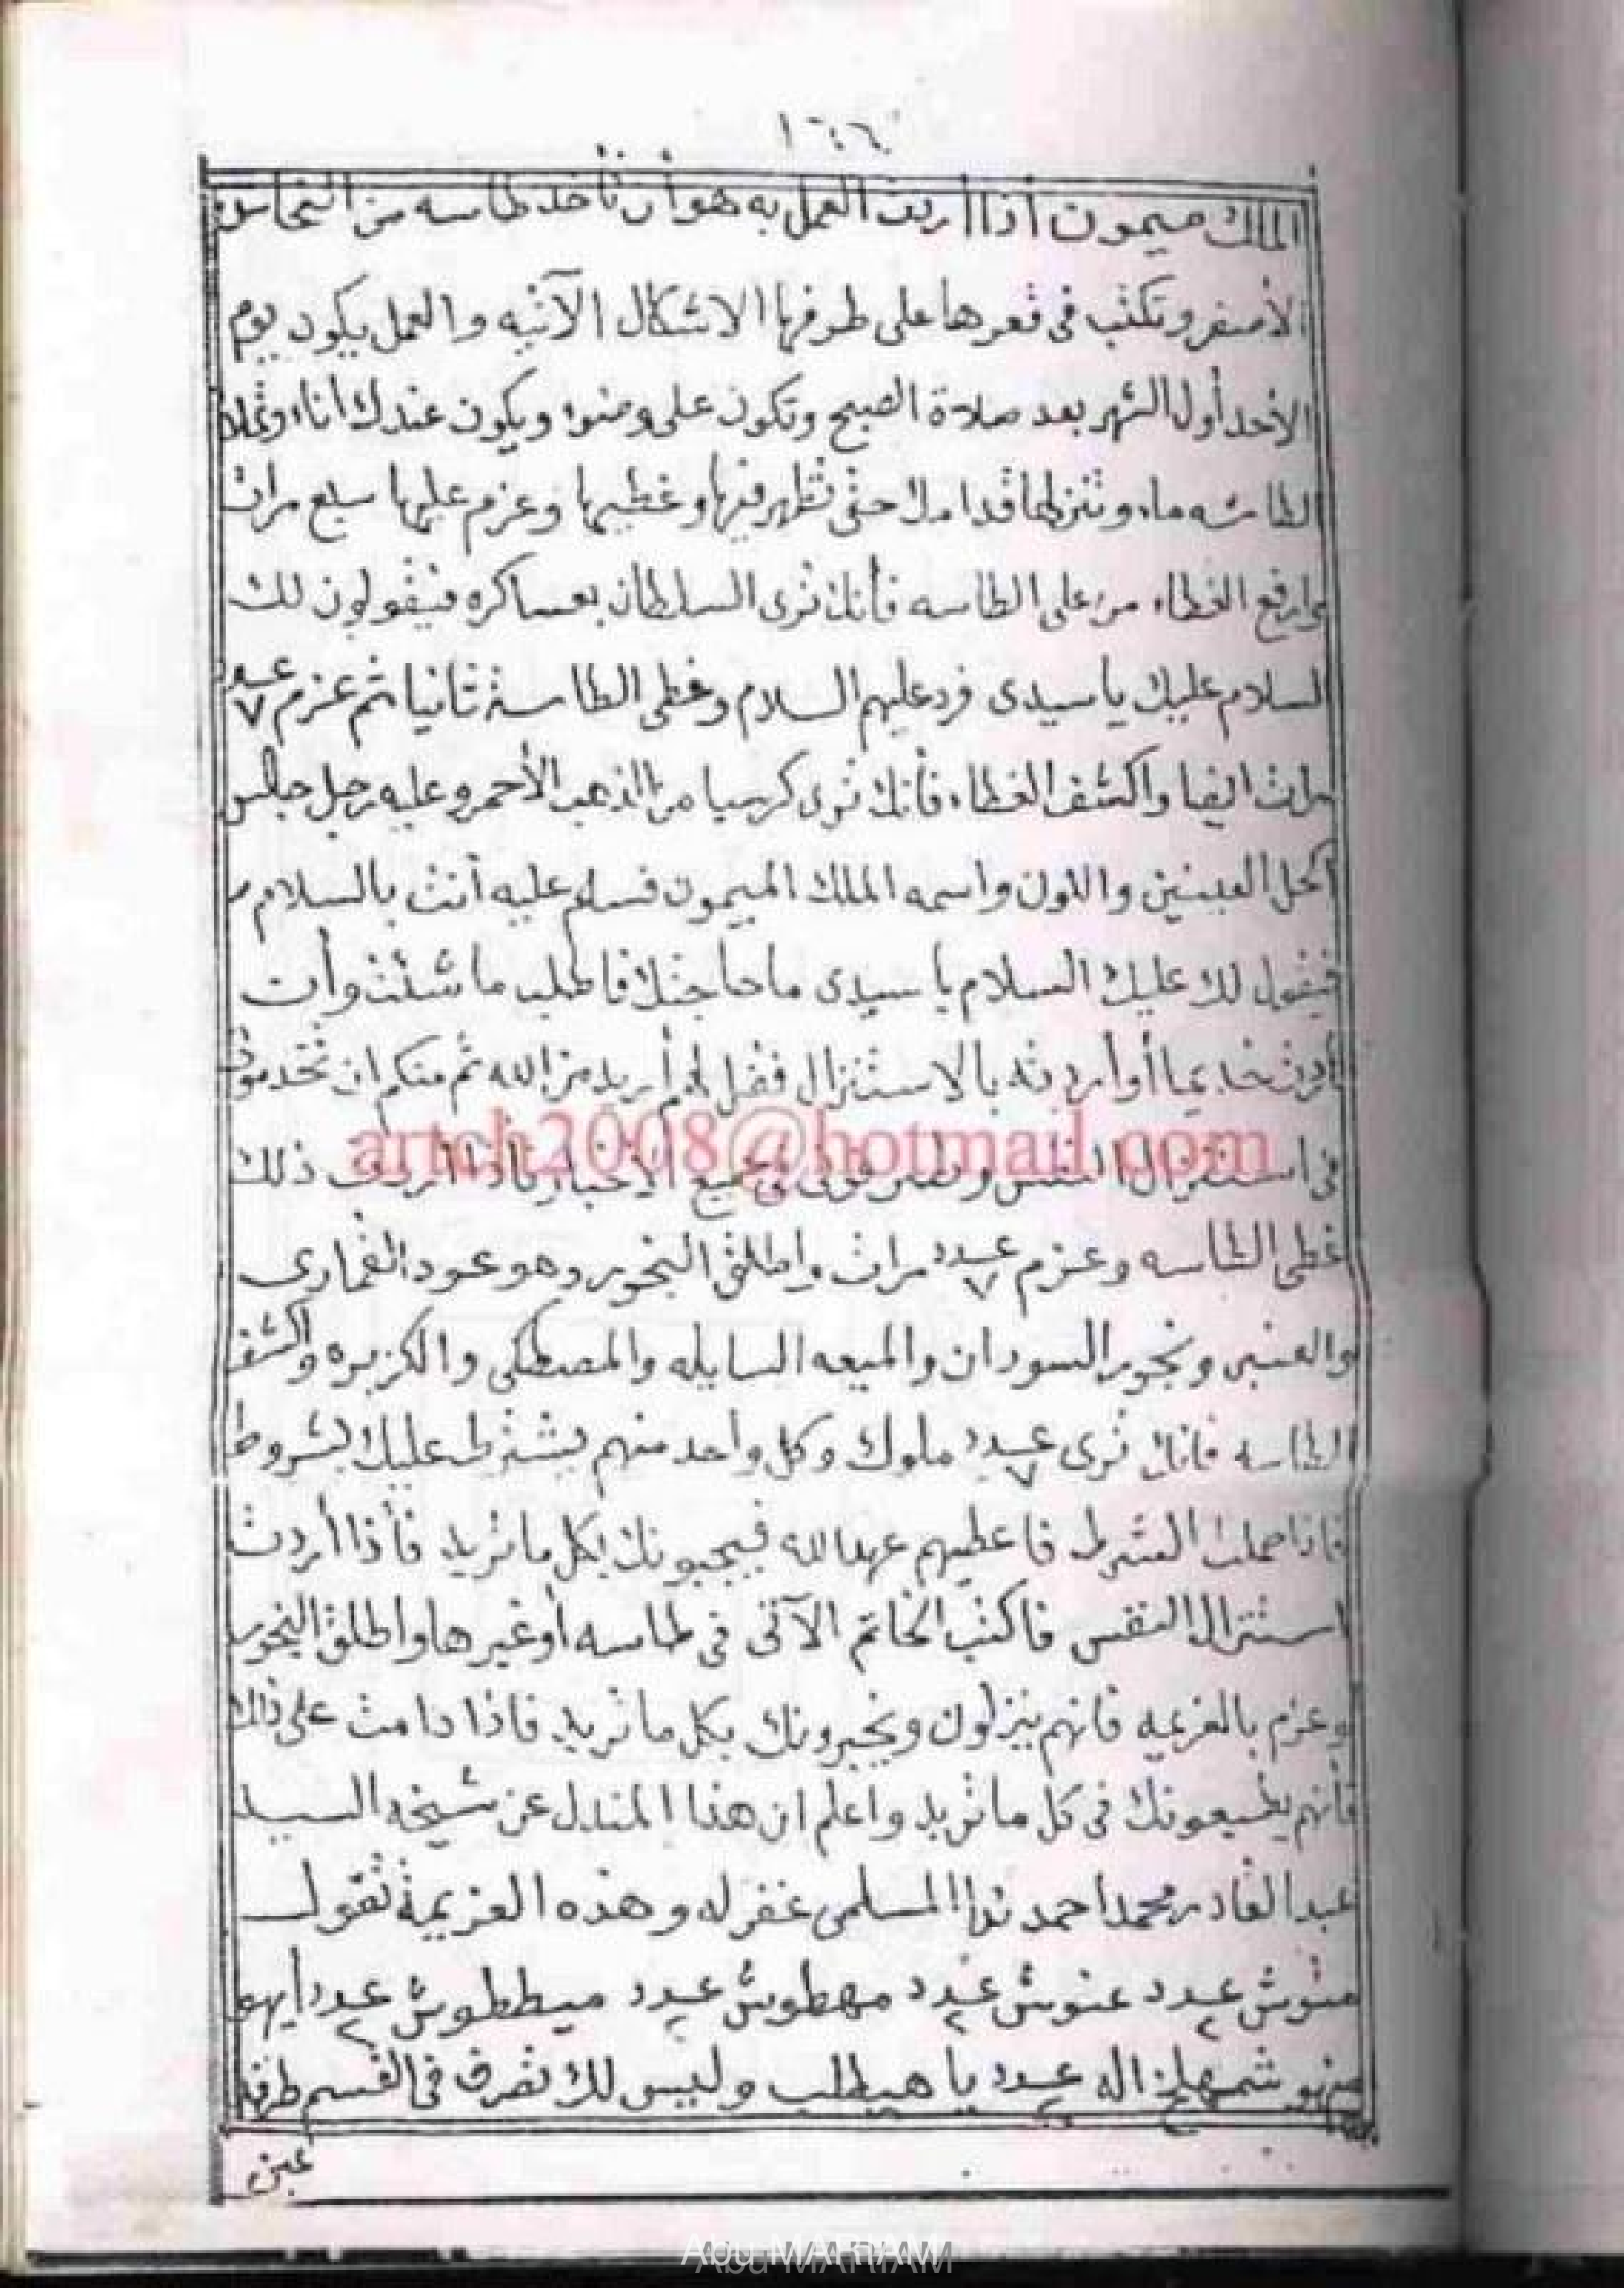 الملك ميمون أذا اردت العمل به هو أن تأخد طاسه من النحاس
الأصفر وتكتب فى قعرها على طرفها الاشكال الآتيه والعمل يكون يوم
الأحد أول الشهر بعد صلاة الصبح وتكون على وضوء ويكون عندك أناء وتملاء
الطاسه ماء وتنزلها قدامك حتى تظهر فيها وغطيها وعزم عليها سبع مرات
وارفع الغطاء من على الطاسه فأنك ترى السلطان بعساكره فيقولون لك
السلام عليك يا سيدى فرد عليهم السلام وغطى الطاسة ثانيا ثم عزم عدد ٧
مرات ايضا واكشف الغطاء فأنك ترى كرسيا من الذهب الأحمر وعليه رجل جالس
اكحل العينين واللون واسمه الملك الميمون فسلم عليه أنت بالسلام
فيقول لك عليك السلام يا سيدى ما حاجتك فاطلب ما شئت وأن
أردت خديما أو أردته بالاستنزال فقل لهم أريد من الله ثم منكم ان تخدمونى
فى استنزال النفس فى جميع الأخبار فأذا أردت ذلك
غطى الطاسه وعزم عدد ٧ مرات واطلق البخور وهو عود القمارى
والعنبر وبخور السودان والميعه السايله والمصطكى والكزبره واكشف
الطاسه فانك ترى عدد ٧ ملوك وكل واحد منهم يشترط عليك بشروط
فاذا حملت الشرط فاعطيهم عهدالله فيجيبونك بكل ما تريد فأذا أردت
استنزال النفس فاكتب الخاتم الآتى فى طاسه أو غيرها واطلق البخور
وعزم بالعزيمه فانهم ينزلون ويخبرونك بكل ما تريد فاذا دامت على ذلك
فأنهم يطيعونك فى كل ما تريد واعلم ان هذا المندل عن شيخه السيد
عبد القادر محمد أحمد ندا المسلمى غفرله وهذه العزيمة تقول
منوش عدد ٢ عنوش عدد ٢ مهطوش عدد ٢ ميططوش عدد ٢ أيهو
شمهلخ اله عدد ٢ يا هيطلب وليس لك تصرف فى القسم طرفة
عين
artch2008@hotmail.com
Abu MARIAM